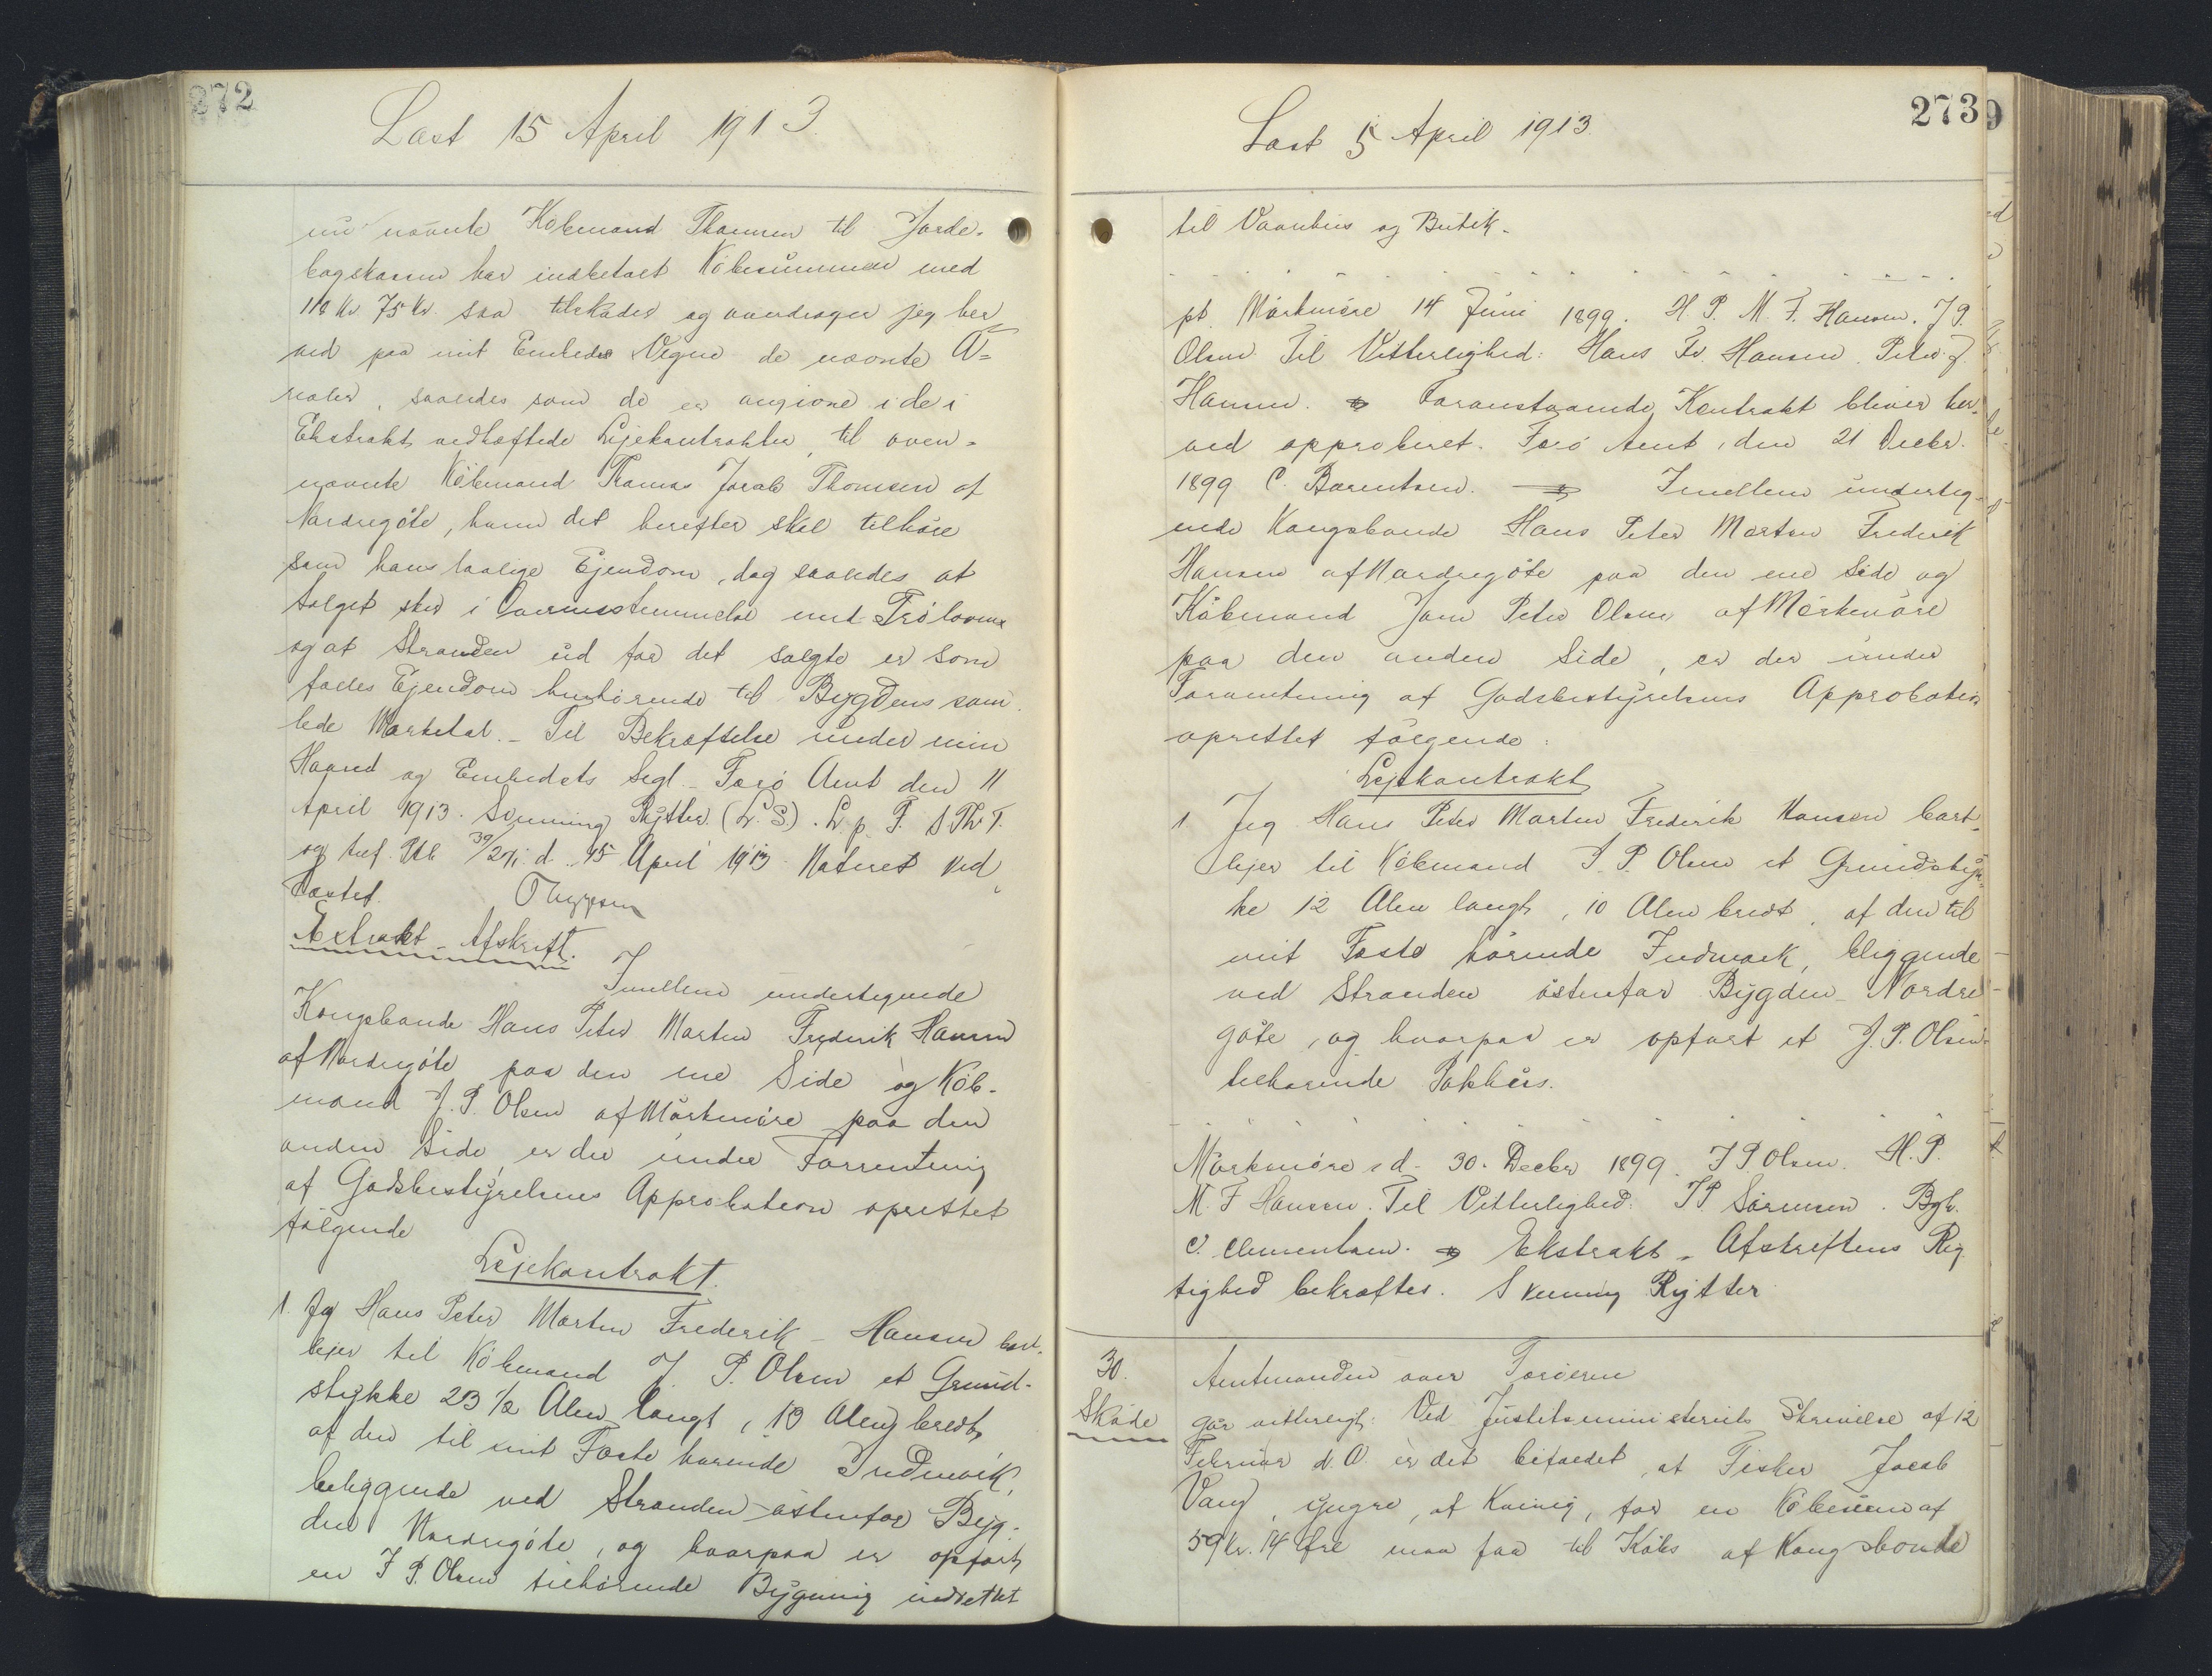 272
Læst 15 April 1913
nu nævnte Købmand Thomsen til Jorde-
bogskassen har indbetalt Købesummen med
118 Kr. 75 Ør. saa tilskøder og overdrager jeg her
ved paa mit Embeds Vegne de nævnte A-
realer, saaledes som de er angivne i de i
Ekstrakt vedhæftede Lejekontrakter, til oven-
nævnte Købmand Thomas Jacob Thomsen af
Nordregøte, ham det herefter skal tilhøre
som hans lovlige Ejendom, dog saaledes at
Salget sker i Overensstemmelse med Frø lovene
og at Stranden ud for det solgte er som
fælles Ejendom henhørende til Bygdens sam
lede Marketal. - Til Bekræftelse under min
Haand og Embedets Segl. - Færø Amt den 11
April 1913. Svenning Rytter. (L.S.). L. p. T. S Th T.
og d. 15 April 1913 Noteret ved
fæstet.
Extrakt - Afskrift.
Imellem undertegnede
Kongsbonde Hans Peter Morten Frederik Hansen
af Nordregøte paa den ene Side og Køb-
mand J. P. Olsen af Mørkenøre paa den
anden Side er der under Forventning
af Godsbestyrelsens Approbation oprettet
følgende
Lejekontrakt.
1. Jeg Hans Peter Morten Frederik - Hansen bort-
lejer til Købmand J. P. Olsen et Grund-
stykke 23 1/2 Alen langt, 13 Alen bredt,
af den til mit Fæste hørende Indmark,
beliggende ved Stranden østenfor Byg-
den Nordregøte, og hvorpaa er opført
en J P. Olsen tilhørende Bygning indrettet
273
Læst 5 April 1913.
til Vaanhus og Butik.
pt. Mørkenøre 14 Juni 1899. H. P. M. F. Hansen. J P.
Olsen Til Vitterlighed: Hans Fr. Hansen. Peter J.
Hansen. Foranstaaende Kontrakt bliver her-
ved approberet. Færø Amt, den 21 Decbr.
1899 C. Bærentsen. Imellem underteg-
nede Kongsbonde Hans Peter Morten Frederik
Hansen af Nordregøte paa den ene Side og
Købmand Jens Peter Olsen af Mørkenøre
paa den anden Side, er der under
Forventning af Godsbestyrelsens Approbation
oprettet følgende:
Lejekontrakt
1. Jeg Hans Peter Morten Frederik Hansen bort-
lejer til Købmand J. P. Olsen et Grundstyk-
ke 12 Alen langt, 10 Alen bredt, af den til
mit Fæste hørende Indmark, beliggende
ved Stranden østenfor Bygden Nordre-
gøte, og hvorpaa er opført et J. P. Olsen
tilhørende Pakhus.
Mørkenøre, d. 30. Decbr 1899. J P. Olsen. H. P.
M. F Hansen. Til Vitterlighed: J P. Sørensen. Bgh.
C. Clementsen. Ekstrakt - Afskriftens Rig
tighed bekræftes. Svenning Rytter
30. Amtmanden over Færøerne
Skøde gør vitterligt: Ved Justitsministeriets Skrivelse af 12
Februar d. A. er det bifaldet, at Fisker Jacob
Vang, yngre, af Kvivig, for en Købesum af
59 kr. 14 Øre maa faa til Købs af Kongsbonde